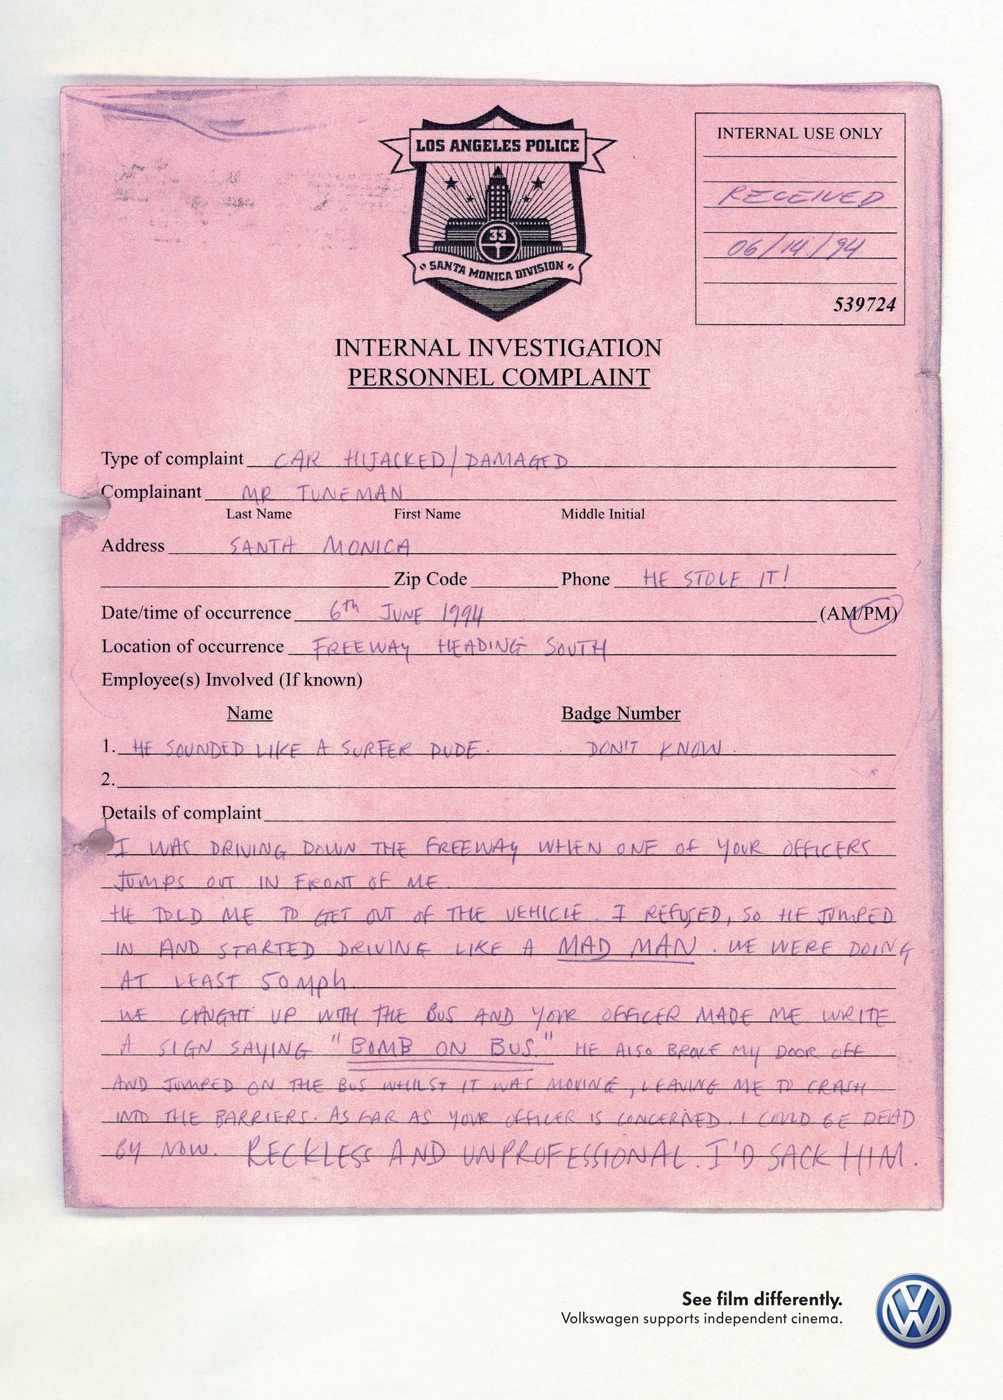 LOS ANGELES POLICE
33
SANTA MONICA DIVISION
INTERNAL USE ONLY
RECEIVED
06/14/94
539724
INTERNAL INVESTIGATION
PERSONNEL COMPLAINT
Type of complaint CAR HIJACKED/DAMAGED
Complainant MR TUNEMAN
Last Name First Name Middle Initial
Address SANTA MONICA
Zip Code Phone HE STOLE IT!
Date/time of occurrence 6th JUNE 1994 (AM/PM)
Location of occurrence FREEWAY HEADING SOUTH
Employee(s) Involved (If known)
Name Badge Number
1. HE SOUNDED LIKE A SURFER DUDE. DON'T KNOW.
2.
Details of complaint
I WAS DRIVING DOWN THE FREEWAY WHEN ONE OF YOUR OFFICERS
JUMPS OUT IN FRONT OF ME.
HE TOLD ME TO GET OUT OF THE VEHICLE. I REFUSED, SO HE JUMPED
IN AND STARTED DRIVING LIKE A MAD MAN. WE WERE DOING
AT LEAST 50 mph.
WE CAUGHT UP WITH THE BUS AND YOUR OFFICER MADE ME WRITE
A SIGN SAYING "BOMB ON BUS." HE ALSO BROKE MY DOOR OFF
AND JUMPED ON THE BUS WHILST IT WAS MOVING, LEAVING ME TO CRASH
INTO THE BARRIERS. AS FAR AS YOUR OFFICER IS CONCERNED, I COULD BE DEAD
BY NOW. RECKLESS AND UNPROFESSIONAL. I'D SACK HIM.
See film differently.
Volkswagen supports independent cinema.
VW